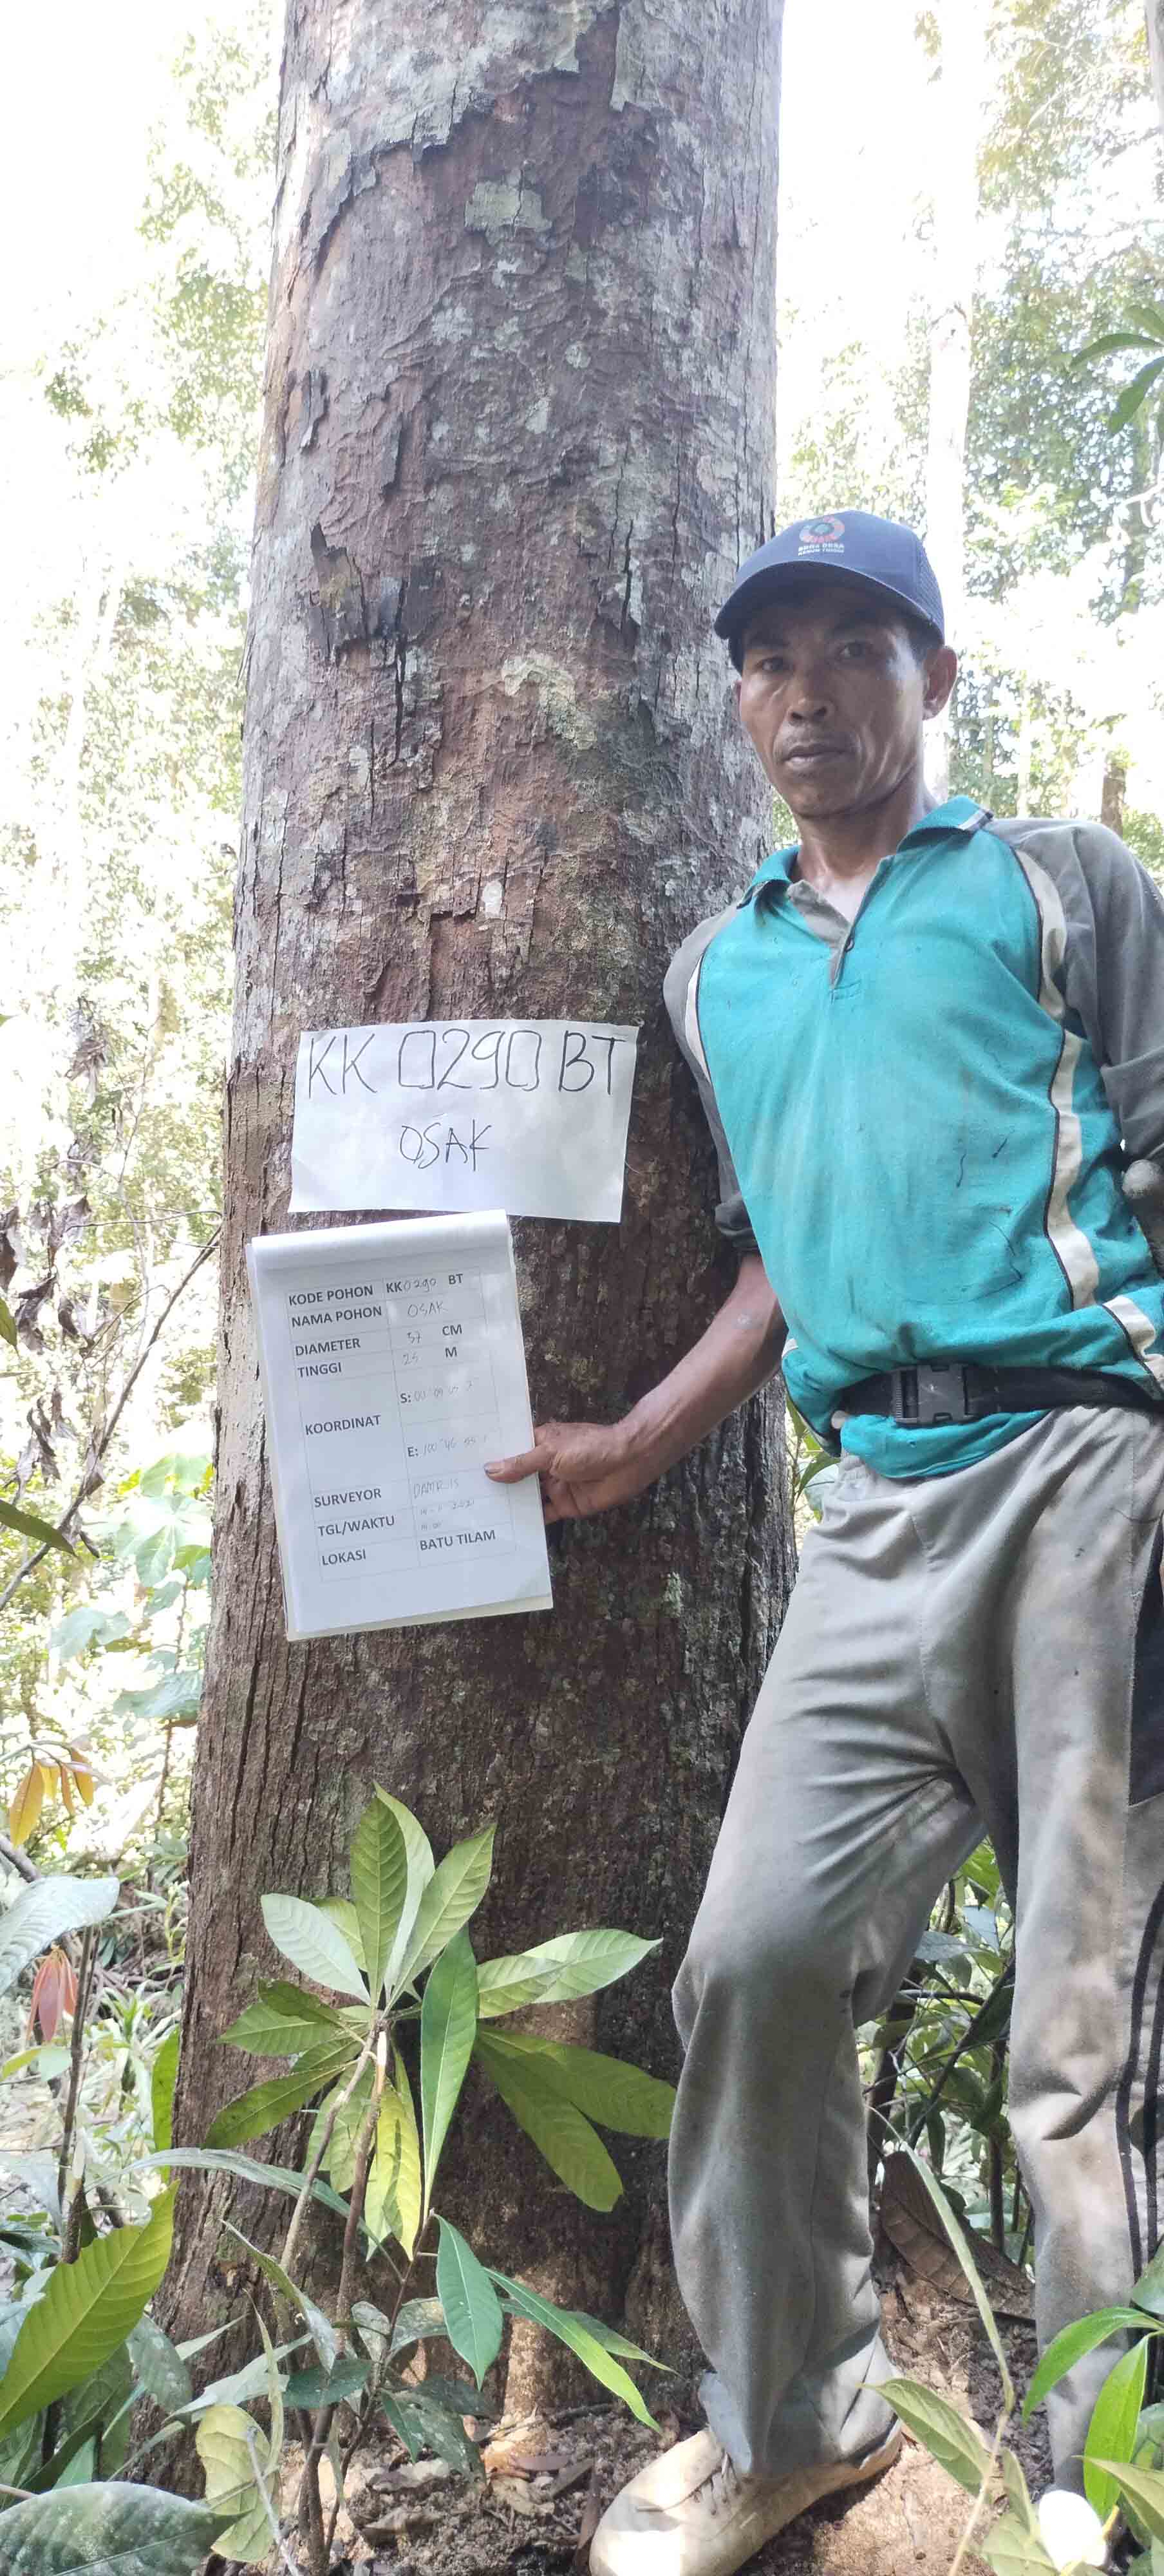 KK 0290 BT
OSAK
KODE POHON KK 0290 BT
NAMA POHON OSAK
DIAMETER 37 CM
TINGGI 25 M
KOORDINAT
S: 00°
E: 100°
SURVEYOR DAMRIS
TGL/WAKTU
LOKASI BATU TILAM